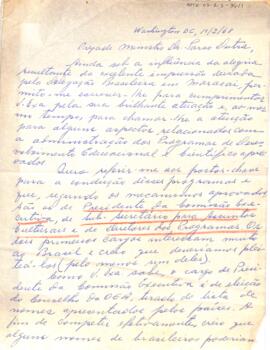 Washington DC, 19/2/68
Prezado Ministro Dr. Tarso Dutra,
Ainda sob a influência da alegria
resultante da excelente impressão deixada
pela delegação Brasileira em Maracai, per-
mito-me escrever-lhe para cumprimentar
V.Exa pela sua brilhante atuação e, ao mes-
mo tempo, para chamar-lhe a atenção
para alguns aspectos relacionados com
a administração dos Programas de Desen-
volvimento Educacional e Científico apro-
vados.
Quero referir-me aos postos-chave
para a condução desses programas e
que, segundo os mecanismos aprovados
são os de Presidente da Comissão Exe-
cutiva, de Sub-Secretário para Assuntos
Culturais e de Diretores dos Programas. Os
dois primeiros cargos interessam muito
ao Brasil e creio que deveríamos plei-
teá-los (pelo menos um deles).
Como V.Exa sabe o cargo de Presi-
dente da Comissão Executiva é de eleição
do Conselho da OEA, tirado de lista de
nomes apresentados pelos países. A
fim de competir efetivamente, creio que
alguns nomes de brasileiros poderiam